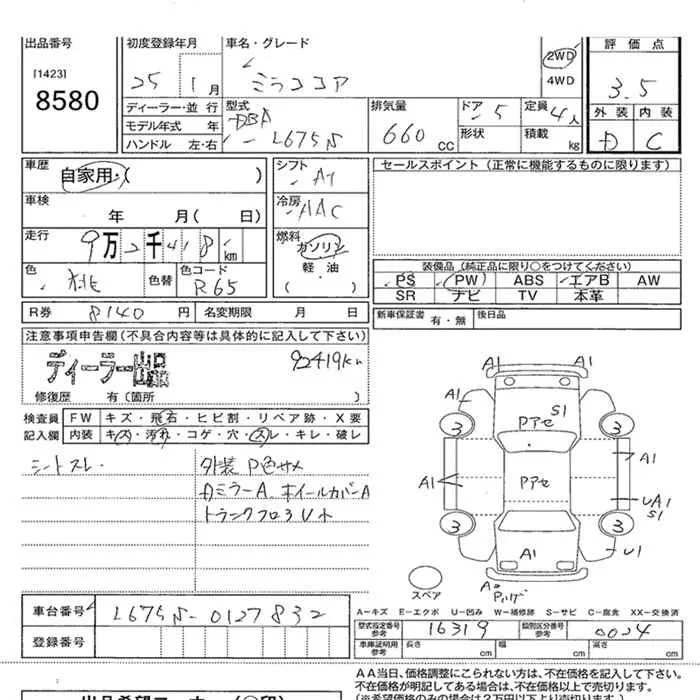 出品番号 初度登録年月 車名・グレード 評価点
[1423]
8580
25 1月 ミラココア 2WD 4WD 3.5
ディーラー・並行 型式 排気量 ドア 5 定員 4人 外装 内装
モデル年式 年 DBA- 形状 積載 kg D C
ハンドル 左・右 L675S 660 CC
車歴 自家用・( ) シフト AT セールスポイント (正常に機能するものに限ります)
車検 年 月( 日) 冷房 AAC
走行 9万2千418km 燃料 ガソリン 軽・油 ( )
装備品 (純正品に限り○をつけてください)
色 桃 色替 色コード R65 PS PW ABS エアB AW
SR ナビ TV 本革
R券 8140円 名変期限 月 日 新車保証書 有・無 後日品
注意事項申告欄(不具合内容等は具体的に記入して下さい)
ディーラー出品 92419km
修復歴 有(箇所
検査員 FW キズ・飛石・ヒビ割・リペア跡・X要
記入欄 内装 キズ・汚れ・コゲ・穴・スレ・キレ・破レ
シートスレ. 外装 P色サメ
DミラーA ホイールカバーA
トランクフロアUオ
A1 A1
A1 S1
Pアセ
3 3
A1 Pアセ A1
UA1
S1
3 3
A1 U1
スペア
A-キズ E-エクボ U-凹み W-補修跡 S-サビ C-腐食 XX-交換済
車台番号 L675S-0127832
型式指定番号 参考 16319 類別区分番号 参考 0024
登録番号
車庫証明用 参考 長さ cm 幅 cm 高さ cm
AA当日、価格調整にこられない方は、不在価格を記入して下さい。
不在価格が明記してある場合は、不在価格以上で売切ります。